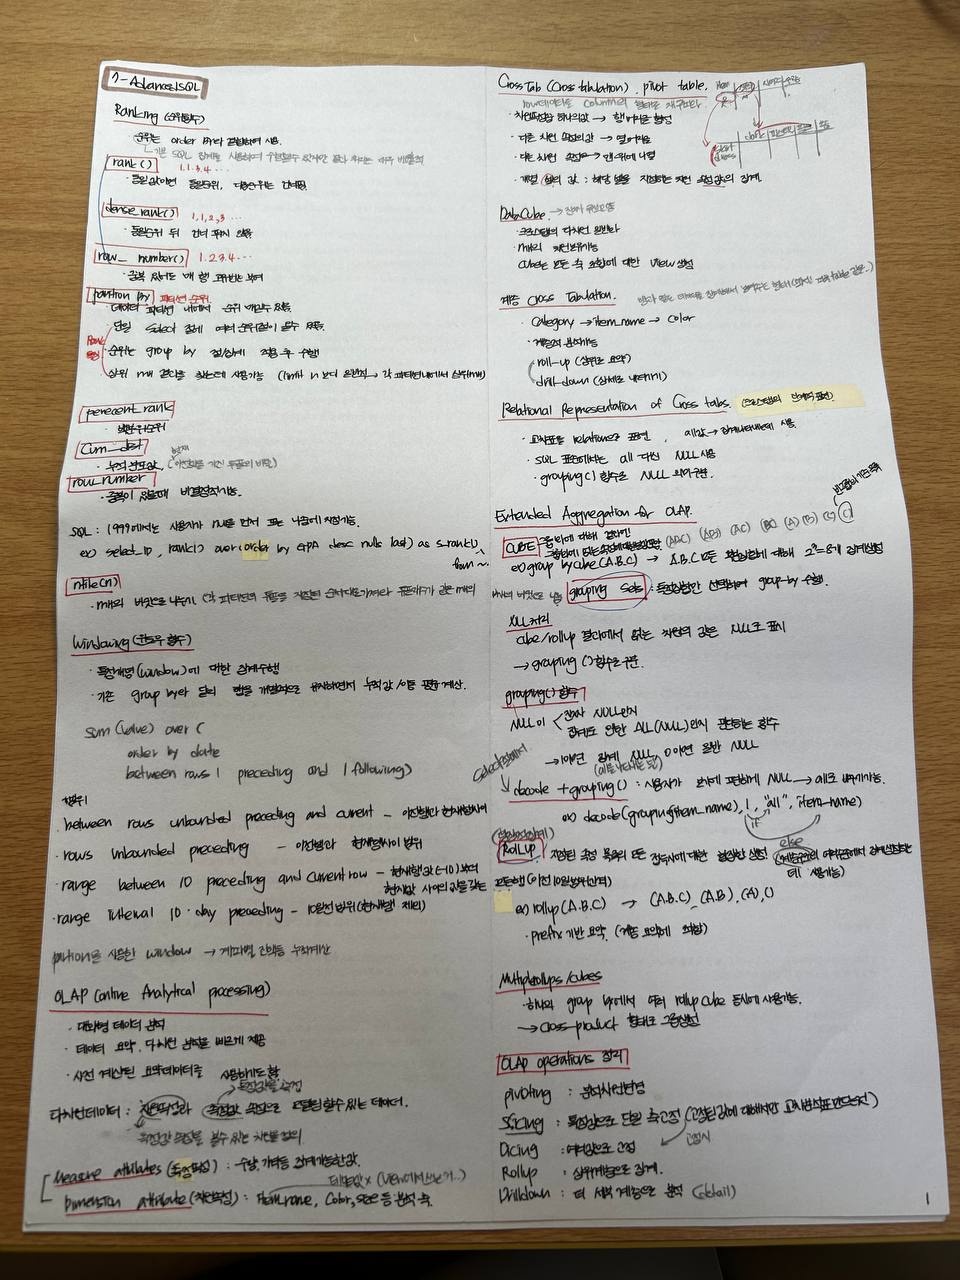 7-Advanced SQL
Ranking (순위함수)
순위는 order by와 결합하여 사용.
rank()
1.1.3.4....
동일값이면 동일순위, 다음순위는 건너뜀
dense_rank()
1,1,2,3 ...
동일순위 뒤 건너 뛰지 않음
row_number()
1.2.3.4....
중복 있어도 매 행 고유번호 부여
partition by
파티션 순위
데이터 파티션 내에서 순위 매길수 있음
단일 select 절에 여러 순위절이 올수 있음.
순위는 group by 절/집계 적용 후 수행
상위 n개 결과를 찾는데 사용가능 (limit n 보다 일반적 → 각 파티션내에서 상위n개)
percent_rank
백분위순위
Cum_dist
누적 분포값,
row_number
중복이 있을때 비결정적가능.
SQL : 1999에서는 사용자가 null을 먼저 또는 나중에 지정가능.
ex) select ID, rank() over (order by GPA desc nulls last) as s_rank
from ~
ntile(n)
n개의 버킷으로 나누기
windowing (윈도우 함수)
특정개행(window)에 대한 집계수행
기존 group by와 달리 행을 개별적으로 유지하면서 누적값/이동 평균 계산.
sum (value) over (
order by date
between rows 1 preceding and 1 following)
범위
between rows unbounded preceding and current - 이전행과 현재행사이
rows unbounded preceding - 이전행과 현재행사이 범위
range between 10 preceding and current row - 현재행값(-10)부터
현재값 사이의 값을 갖는 모든행
range interval 10 day preceding - 10일전 범위(현재행 제외)
partition을 사용한 window → 계좌별 잔액등 누적계산
OLAP (online Analytical processing)
대화형 데이터 분석
데이터 요약, 다차원 분석을 빠르게 제공
사전 계산된 요약데이터를 사용하기도 함
특정값을 측정
다차원데이터 : 차원속성과 측정값 속성으로 모델링 할수 있는 데이터.
Measure attributes (측정속성) : 수량, 가격등 집계가능한값.
Dimension attribute (차원속성) : item_name, color, size 등 분석 축.
Cross Tab (Cross tabulation), pivot table.
row데이터를 column의 형태로 재구조화
차원속성 하나의값 → 행 머리글 형성
다른 차원 속성의값 → 열머리글
다른 차원 속성 → 맨위에 나열
개별 셀의 값 : 해당 셀을 지정하는 차원 속성값의 집계.
Data Cube.
크로스탭의 다차원 일반화
n개의 차원보유가능
Cube는 모든 축 조합에 대한 View 생성
계층 Cross Tabulation.
Category → item_name → color
계층적 분석가능
roll-up (상위로 요약)
drill_down (상세로 내려가기)
Relational Representation of Cross tabs.
(크로스탭의 관계적 표현)
교차표를 relation으로 표현, all값 → 집계나타내는데 사용
SQL 표준에서는 all 대신 NULL 사용
grouping() 함수로 NULL 의미구분.
Extended Aggregation for OLAP.
(ABC) (AB) (AC) (BC) (A) (B) (C) ( )
CUBE
ex) group by cube (A.B.C) → A.B.C 모든 부분집합에 대해 2³=8개 집계생성
grouping Sets : 특정집합만 선택하여 group-by 수행.
NULL처리
cube/rollup 결과에서 없는 차원의 값은 NULL로 표시
→ grouping() 함수로 구분.
grouping() 함수
NULL이
진짜 NULL인지
집계로 인한 ALL(NULL)인지 판단하는 함수
→ 1이면 집계 NULL, 0이면 일반 NULL
Select절에서
decode + grouping() : 사용자가 보기에 편하게 NULL → all로 바꾸기가능.
ex) decode (grouping(item_name), 1, "all", item_name)
if
else
Rollup
지정된 속성 목록의 모든 접두사에 대한 합집합 생성!
ex) rollup (A.B.C) → (A.B.C), (A.B), (A), ()
prefix 기반 요약. (계층 요약에 적합)
Multiple rollups/cubes
하나의 group by에서 여러 rollup cube 동시에 사용가능.
→ Cross-product 형태로 그룹생성
OLAP operations 정리
pivoting : 분석차원변경
Slicing : 특정값으로 단일 축고정 (고정된 값에 대해서만 교차분석표 만드는것)
Dicing : 여러값으로 고정
고정시
Rollup : 상위계층으로 집계.
Drilldown : 더 세부 계층으로 분석 (detail)
1